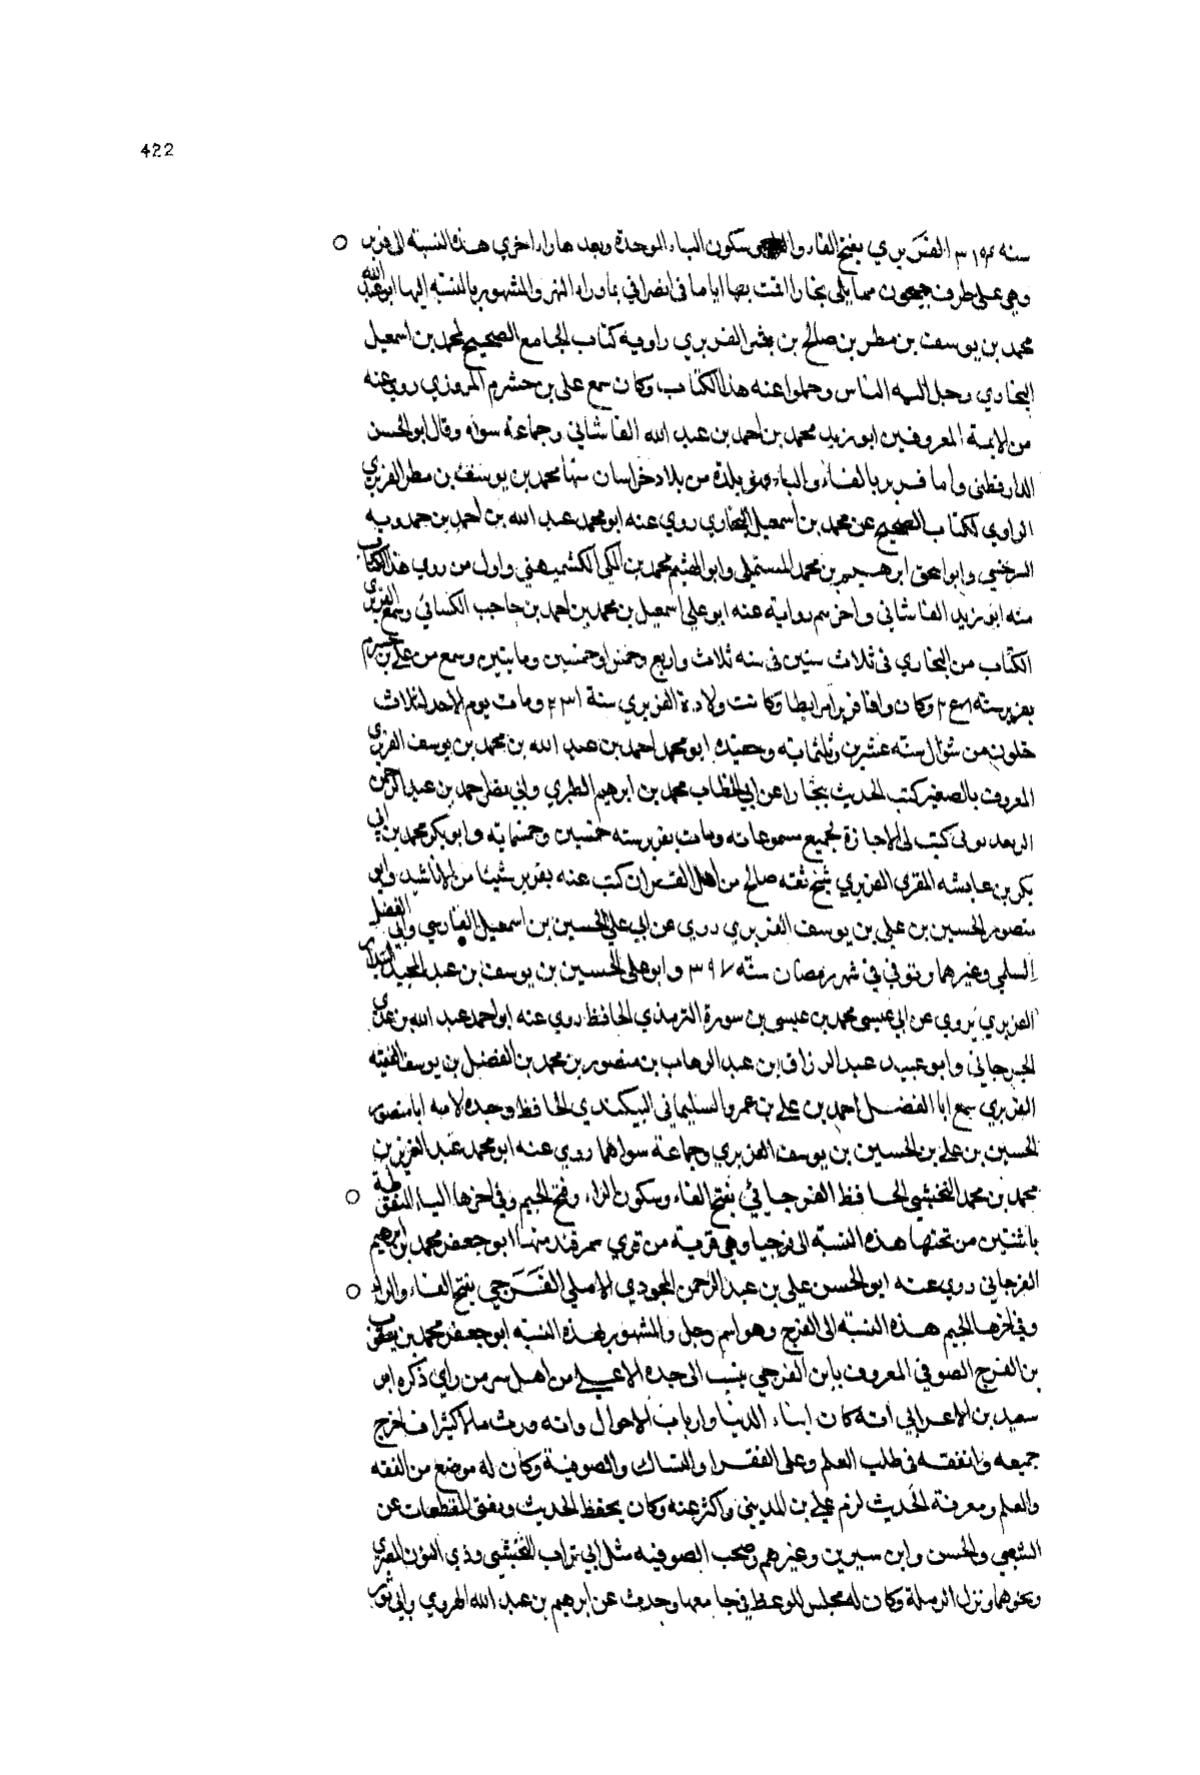 422
سنه ٣١٥٢ الفربري بفتح الفاء والراء وسكون الباء الموحدة وبعدها راء اخري هذه النسبة الى فربر
وهي على طرف جيحون مما يلى بخارا اقمت بها اياما في انصرافي بماوراء النهر والمشهور بالنسبة اليها ابو عبد الله
محمد بن يوسف بن مطر بن صالح بن بشر الفربري راوية كتاب الجامع الصحيح لمحمد بن اسمعيل
البخاري رحل اليه الناس وحملوا عنه هذا الكتاب وكان سمع على بن خشرم المروزي روي عنه
من الايمة المعروفين ابو زيد محمد بن احمد بن عبد الله الفاشاني وجماعة سواه وقال ابو الحسن
الدارقطني واما فربر بالفاء والباء فهو بلدة من بلاد خراسان منها محمد بن يوسف بن مطر الفربري
الراوي لكتاب الصحيح عن محمد بن اسمعيل البخاري روي عنه ابو محمد عبد الله بن احمد بن حمدويه
السرخسي وابو اسحق ابرهيم بن محمد المستملى وابو الهيثم محمد بن المكي الكشميهني واول من روي هذا الكتاب
منه ابو زيد الفاشاني واخرهم رواية عنه ابو علي اسمعيل بن محمد بن احمد بن حاجب الكسائي وسمع الفربري
الكتاب من البخاري في ثلاث سنين في سنه ثلاث واربع وخمس وخمسين ومايتين وسمع من على بن خشرم
بفربر سنه وكان وافا فربر مرابطا وكانت ولادة الفربري سنة ٢٣١ ومات يوم الاحد لثلاث
خلون من شوال سنه عشرين وثلثمائه وحفيده ابو محمد احمد بن عبد الله بن محمد بن يوسف الفربري
المعروف بالصغير كتب الحديث ببخارا عن ابي الخطاب محمد بن ابرهيم الطبري وابي نصر احمد بن عبد الرحمن
كتب لى الاجازة لجميع مسموعاته ومات بفربر سنه خمسين وخمسمائه وابو بكر محمد بن ابي
بكر بن عايشه المقرى الفربري شيخ ثقه صالح من اهل القران كتب عنه بفربر شيئا من الاناشيد وابو
منصور الحسين بن على بن يوسف الفربري روي عن ابي على الحسين بن اسمعيل الفارسي وابي الفضل
السلمي وغيرهما وتوفي في شهر رمضان سنة ٣٩٧ وابو على الحسين بن يوسف بن عبد المجيد
الفربري يروي عن ابي عيسى محمد بن عيسى بن سورة الترمذي الحافظ روي عنه ابو احمد عبد الله بن عدي
الجرجاني وابو عبيد عبد الرزاق بن عبد الوهاب بن منصور بن محمد بن الفضل بن يوسف الفقيه
الفربري سمع ابا الفضل احمد بن على بن عمرو السليماني البيكندي الحافظ وجده لامه ابا منصور
الحسين بن على بن الحسين بن يوسف الفربري وجماعة سواهما روي عنه ابو محمد عبد العزيز بن
محمد بن محمد النخشبي الحافظ الفرجيائي بفتح الفاء وسكون الراء وفتح الجيم وفي اخرها الياء المنقوطة
باثنتين من تحتها هذه النسبة الى فرجيا وهي قرية من قري سمرقند منها ابو جعفر محمد بن ابرهيم
الفرجاني روي عنه ابو الحسن على بن عبد الرحمن الاملي الفرجي بفتح الفاء والراء
وفي اخرها الجيم هذه النسبة الى الفرج وهو اسم رجل والمشهور بهذه النسبة ابو جعفر محمد بن يعقوب
بن الفرج الصوفي المعروف بابن الفرجي ينسب الى جده الاعلى من اهل سر من راي ذكره ابو
سعيد بن الاعرابي انه كان ابناء الدنيا وارباب الاحوال وانه ورث مالا كثيرا فاخرج
جميعه وانفقه في طلب العلم وعلى الفقرا والنساك والصوفية وكان له موضع من الفقه
والعلم ومعرفة الحديث لزم على بن المديني واكثر عنه وكان يحفظ الحديث ويفتي المقطعات عن
الشعبي والحسن وابن سيرين وغيرهم وصحب الصوفيه مثل ابي تراب النخشبي وذي النون المصري
ونحوهما ونزل الرملة وكان له مجلس للوعظ في جامعها وحدث عن ابرهيم بن عبد الله الهروي وابي ثور